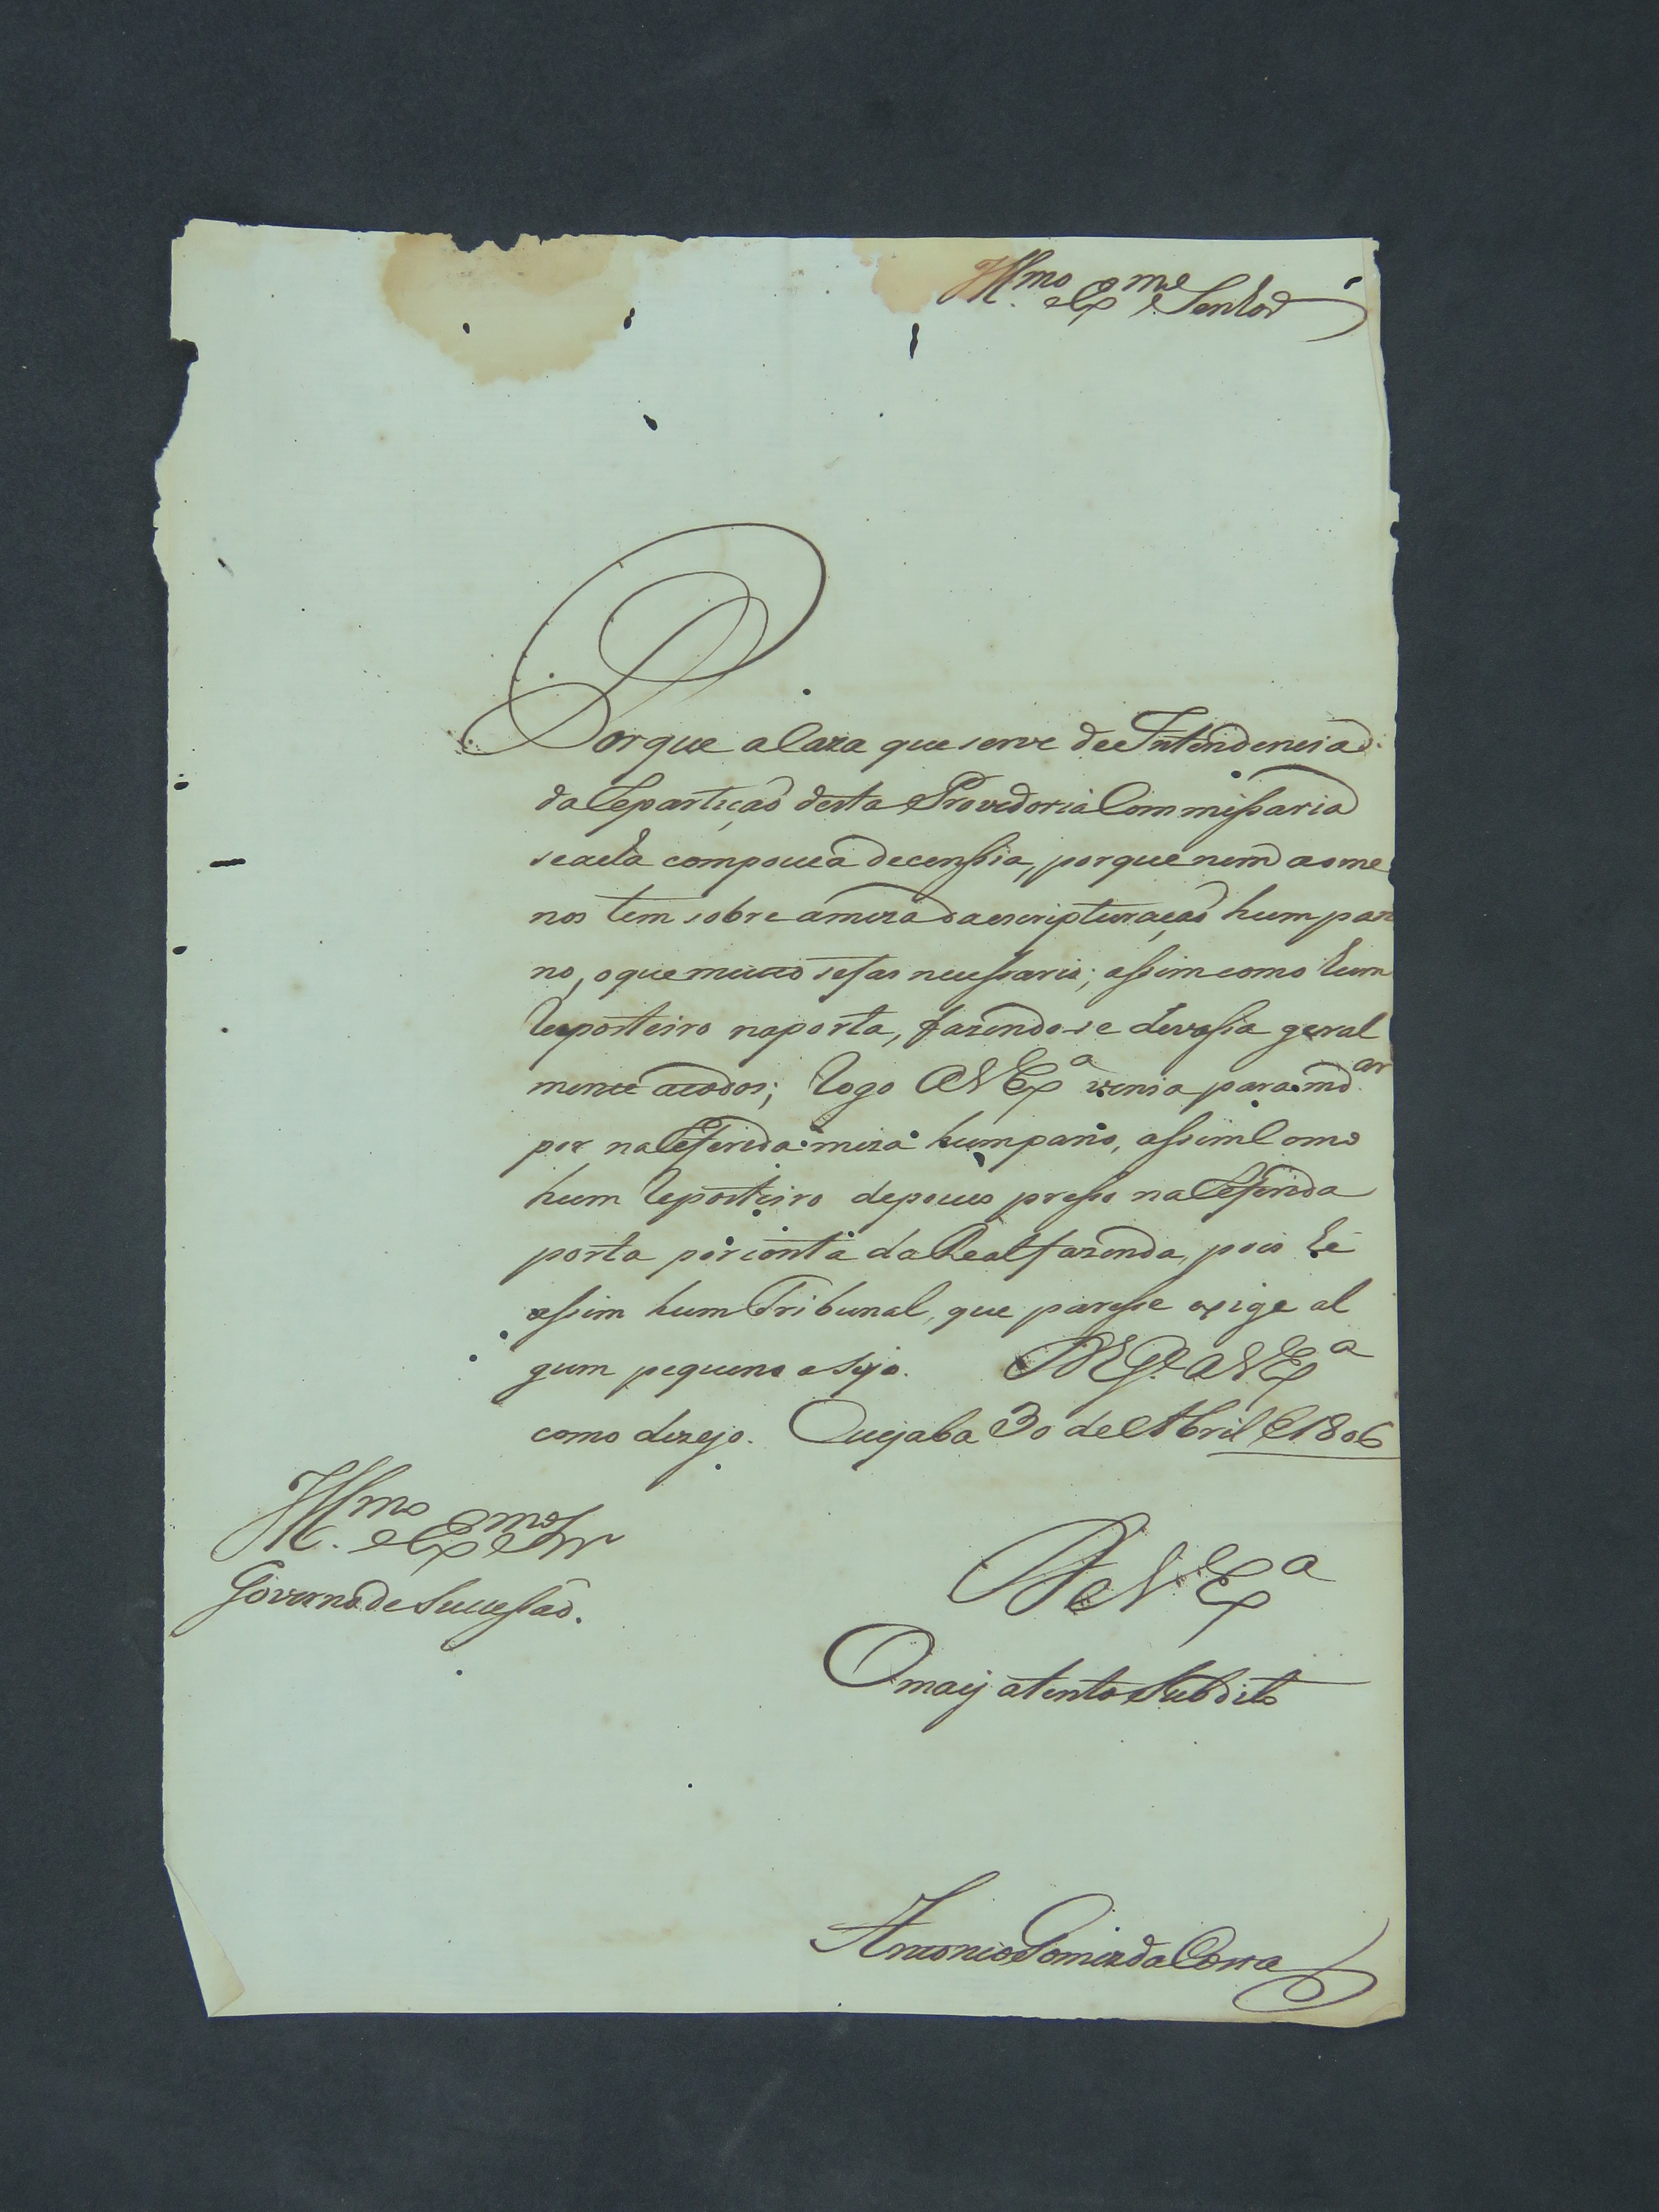 Illmo e Exmo Senhor
Porque a Caza que serve de Intendencia
da Repartiçaõ desta Provedoria Commissaria
se acha com pouca decenssia, porque nem ao me
nos tem sobre a meza da escripturaçaõ hum pan
no, o que muito se fas necessario; assim como hum
Reposteiro na porta, fazendo-se devassa geral
mente a todos; Rogo a V Exa venia para mdar
por na Referida meza hum pano, assim Como
hum Reposteiro de pouco presso na Referida
porta por conta da Real fazenda, pois hé
assim hum Tribunal, que paresse exige al
gum pequeno asejo. D Gde a V Exa
como dezejo. Cuyaba 30 de Abril de 1806
Illmo e Exmo Snr
Governo de Sucessaõ.
De V Exa
O mais atento Subdito
Antonio Gomez da Costa